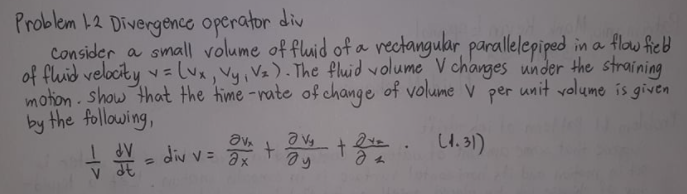 Problem 1-2 Divergence operator div
Consider a small volume of fluid of a rectangular parallelepiped in a flow field
of fluid velocity v = (Vx, Vy, Vz). The fluid volume V changes under the straining
motion. Show that the time-rate of change of volume V per unit volume is given
by the following,
1/V dV/dt = div v = ∂Vx/∂x + ∂Vy/∂y + ∂Vz/∂z . (1.31)